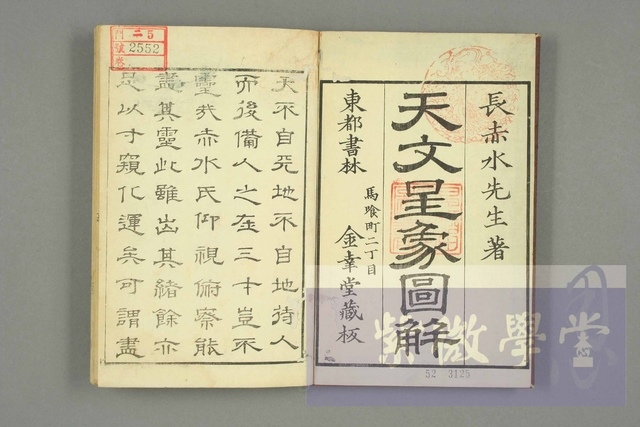 長赤水先生著
天文星象圖解
東都書林
馬喰町二丁目
金幸堂藏板
天不自天地不自地待人
而後備人之在三才豈不
靈哉赤水氏仰視俯察能
盡其靈此雖出其緒餘亦
足以寸窺化運矣可謂盡
門 二5
號 2552
卷
52 3125
紫微學堂